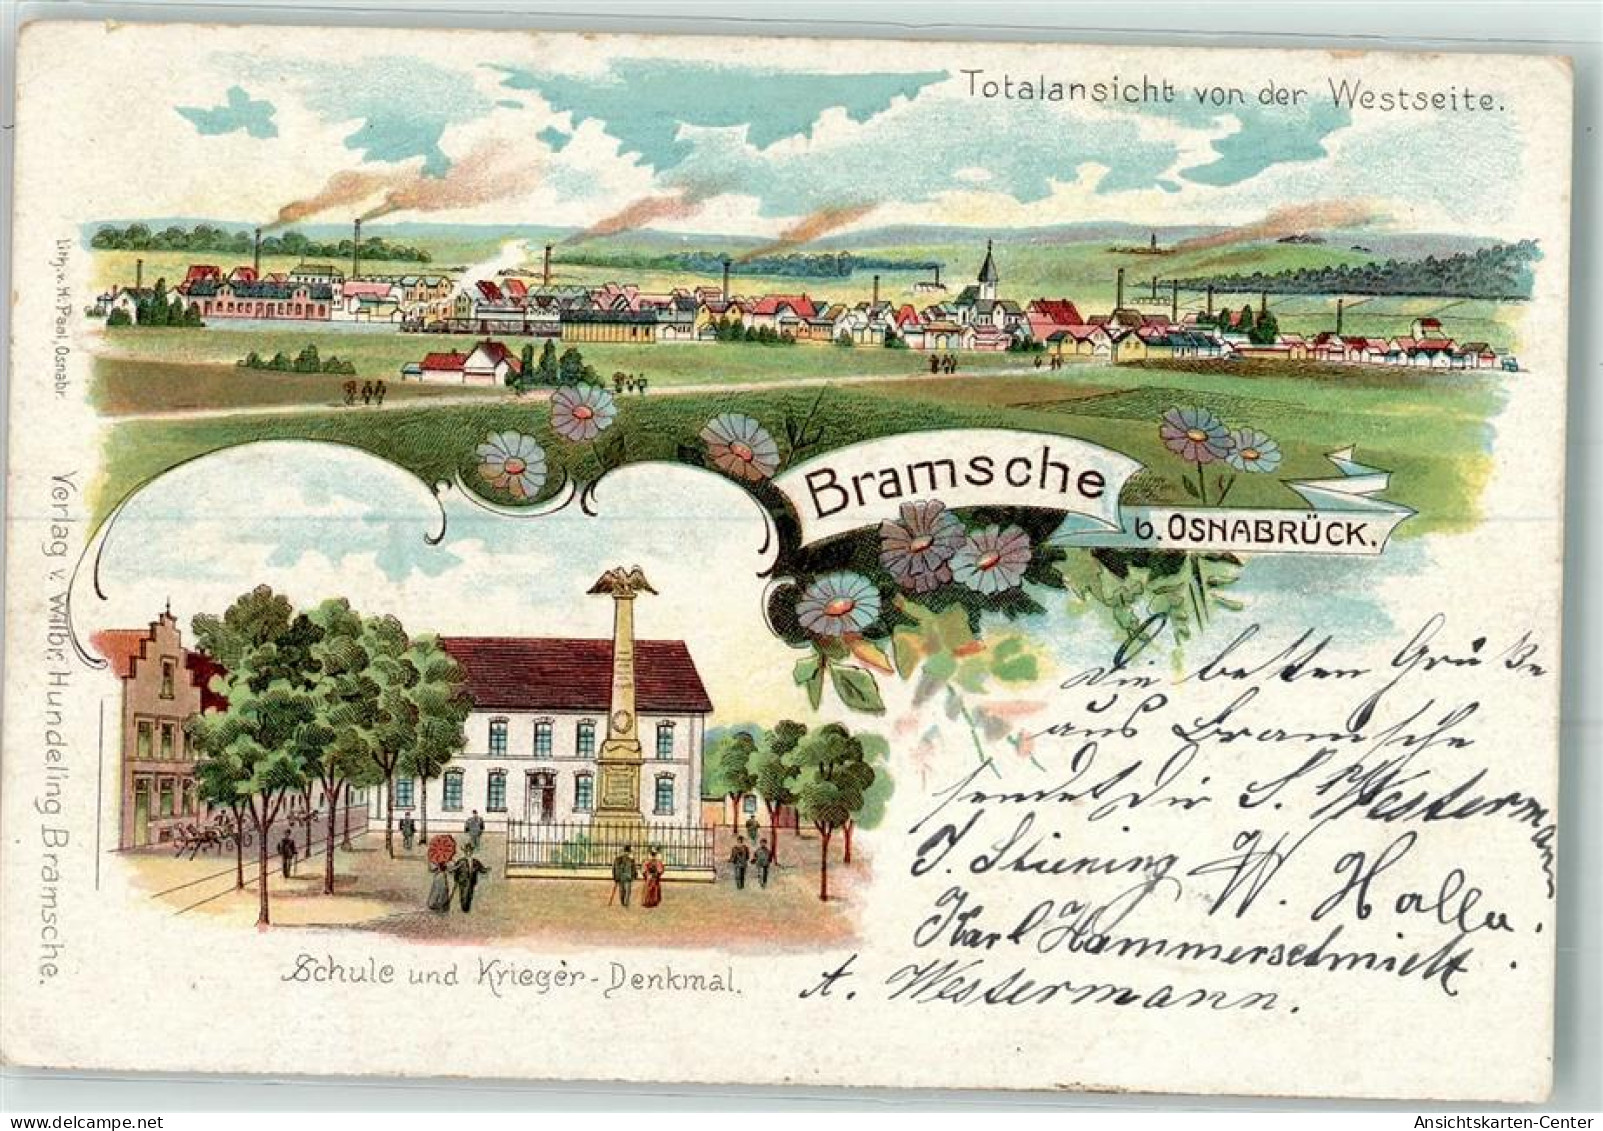 Totalansicht von der Westseite.
Lith. v. H. Paul, Osnabr.
Verlag v. Wilbr. Hundeling Bramsche.
Bramsche
b. OSNABRÜCK.
Schule und Krieger-Denkmal.
Die besten Grüße
aus Bramsche
sendet Dir S. Westermann
J. Stiening W. Holle.
Karl Hammerschmidt.
A. Westermann.
AnsichtsKarten-Center